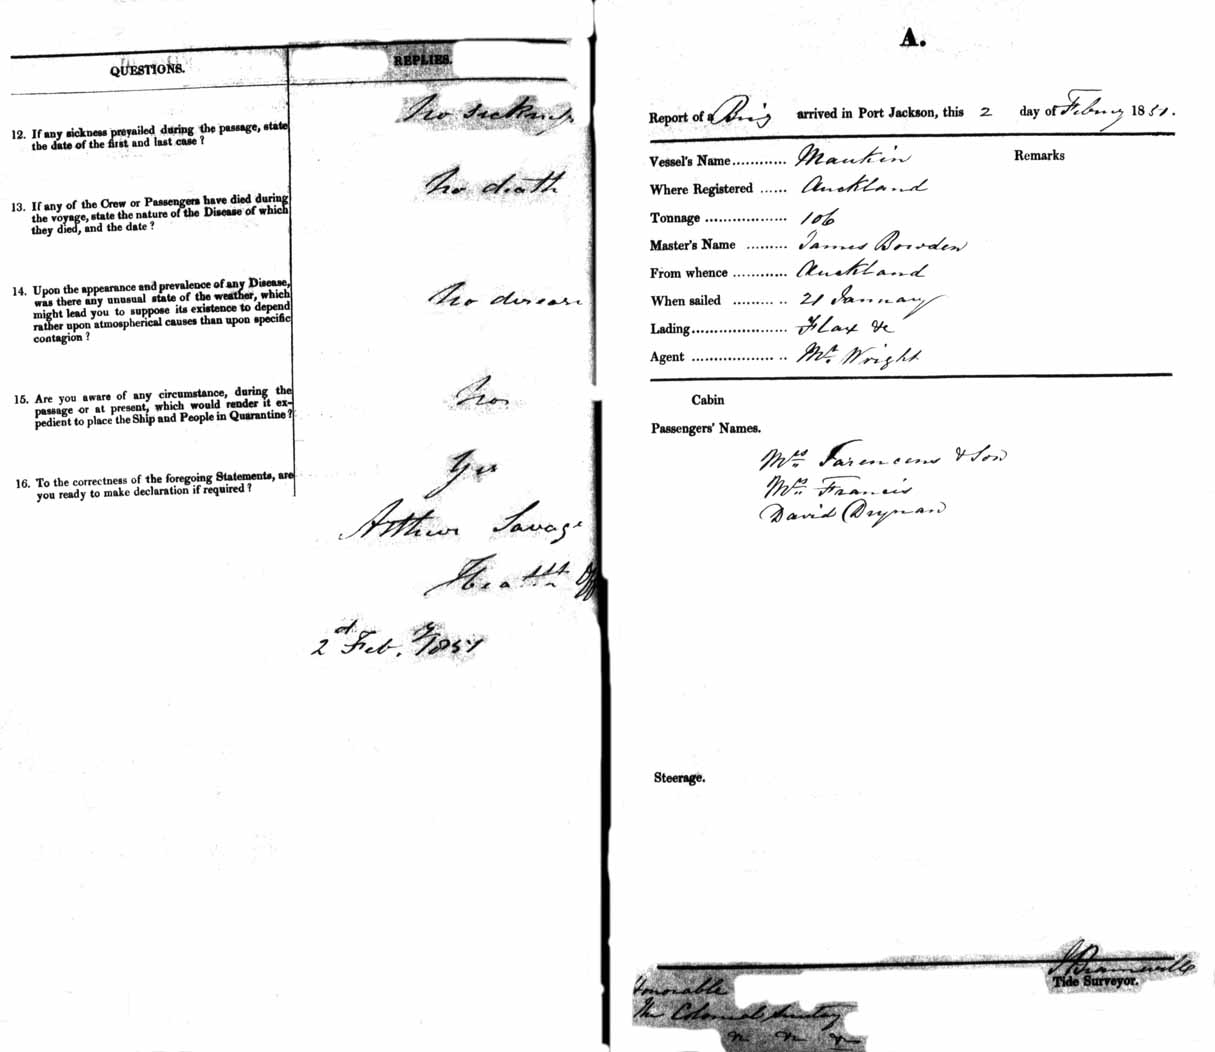 QUESTIONS.
REPLIES.
12. If any sickness prevailed during the passage, state
the date of the first and last case ?
No sickness
13. If any of the Crew or Passengers have died during
the voyage, state the nature of the Disease of which
they died, and the date ?
No death
14. Upon the appearance and prevalence of any Disease,
was there any unusual state of the weather, which
might lead you to suppose its existence to depend
rather upon atmospherical causes than upon specific
contagion ?
No disease
15. Are you aware of any circumstance, during the
passage or at present, which would render it ex-
pedient to place the Ship and People in Quarantine ?
No
16. To the correctness of the foregoing Statements, are
you ready to make declaration if required ?
Yes
Arthur Savage
Health Off
2d Feb.y 1851
A.
Report of a Brig arrived in Port Jackson, this 2 day of Febry 1851.
Vessel's Name ............ Maukin Remarks
Where Registered ...... Auckland
Tonnage .................. 106
Master's Name ......... James Bowden
From whence ............ Auckland
When sailed ......... .. 21 January
Lading..................... Flax &c
Agent ................... .. Mr. Wright
Cabin
Passengers' Names.
Mrs & Son
Mrs Francis
David Drynan
Steerage.
Tide Surveyor.
Honorable
The Colonial Secretary